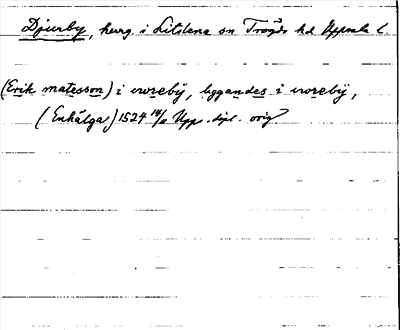 Djurby, herrg. i Litslena sn Trögds hd Uppsala l.
(Erik matesson) i iwreby, byggandes i iwreby,
(Enhälga) 1524 14/11 Upps. dipl. orig